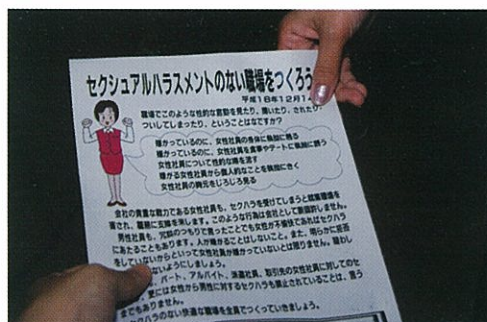 セクシュアルハラスメントのない職場をつくろう
平成18年12月1
職場でこのような性的な言動を見たり、聞いたり、されたり、
ついしてしまったり、ということはなですか?
嫌がっているのに、女性社員の身体に執拗に触る
嫌がっているのに、女性社員を食事やデートに執拗に誘う
女性社員について性的な噂を流す
嫌がる女性社員から個人的なことを執拗にきく
女性社員の胸元をじろじろ見る
会社の貴重な戦力である女性社員も、セクハラを受けてしまうと就業環境を
害され、職務に支障を来します。このような行為は会社として断固許しません。
男性社員も、冗談のつもりで言ったことでも女性が不愉快であればセクハラ
にあたることもあります。人が嫌がることはしないこと。また、明らかに拒否
をしていないからといって女性社員が嫌がっていないとは限りません。疑わし
ないようにしましょう。
、パート、アルバイト、派遣社員、取引先の女性社員に対してのセ
、更には女性から男性に対するセクハラも禁止されていることは、言う
までもありません。
セクハラのない快適な職場を全員でつくっていきましょう。